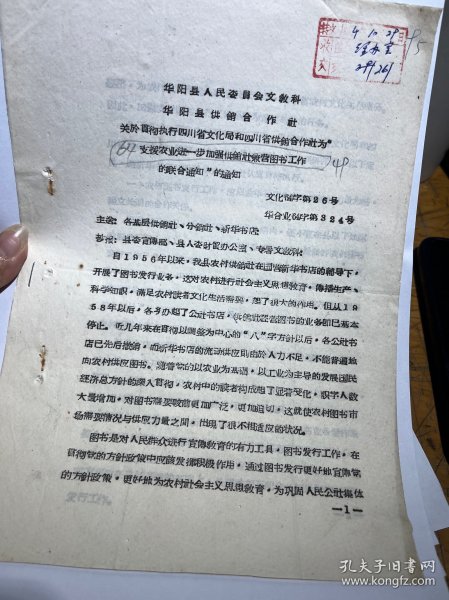 4 10 29
华阳县人民委员会文教科
华阳县供销合作社
关於贯彻执行四川省文化局和四川省供销合作社为"
支援农业进一步加强供销社兼营图书工作
的联合通知"的通知
文化福字第26号
华合业福字第324号
主送：各基层供销社、分销社、新华书店：
抄报：县委宣传部、县人委财贸办公室、专署文教科：
自1956年以来，我县农村供销社在国营新华书店的辅导下，
开展了图书发行业务，这对农村进行社会主义思想教育，传播生产、
科学知识，满足农村读者文化生活需要，起了很大的作用。但从19
58年以后，各乡办起了公社书店，供销社兼营图书的业务即已基本
停止。近几年来在贯彻以调整为中心的"八"字方针以后，各公社书
店已先后撤销，而新华书店的流动供应则由於人力不足，不能普遍地
向农村供应图书。随着党的以农业为基础，以工业为主导的发展国民
经济总方针的深入贯彻，农村中的读者构成起了显著变化，识字人数
大量增加，对图书需要较前更加广泛，更加迫切，这就使农村图书市
场需要情况与供应力量之间，出现了很不相适应的状况。
图书是对人民群众进行宣传教育的有力工具，图书发行工作，在
贯彻党的方针政策中应该发挥积极作用，通过图书发行更好地宣传党
的方针政策，更好地为农村社会主义思想教育，为巩固人民公社集体
—1—
孔夫子旧书网
www.kongfz.com